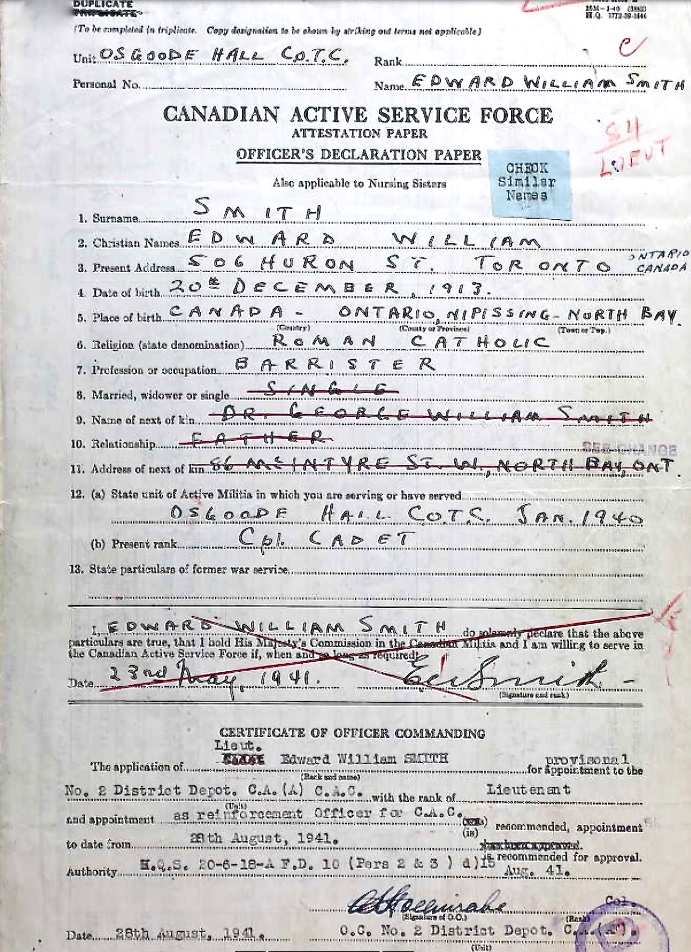 DUPLICATE
TRIPLICATE
H.Q. 1772-39-1646
(To be completed in triplicate. Copy designation to be shown by striking out terms not applicable)
Unit OSGOODE HALL C.O.T.C. Rank
C
Personal No. Name EDWARD WILLIAM SMITH
CANADIAN ACTIVE SERVICE FORCE
ATTESTATION PAPER
OFFICER'S DECLARATION PAPER
Also applicable to Nursing Sisters
CHECK
Similar
Names
84
LIEUT
1. Surname SMITH
2. Christian Names EDWARD WILLIAM
3. Present Address 506 HURON ST. TORONTO ONTARIO CANADA
4. Date of birth 20th DECEMBER, 1913.
5. Place of birth CANADA - ONTARIO, NIPISSING - NORTH BAY.
(Country) (County or Province) (Town or Twp.)
6. Religion (state denomination) ROMAN CATHOLIC
7. Profession or occupation BARRISTER
8. Married, widower or single SINGLE
9. Name of next of kin DR. GEORGE WILLIAM SMITH
10. Relationship FATHER
SEE CHANGE
11. Address of next of kin 86 MCINTYRE ST. W., NORTH BAY, ONT.
12. (a) State unit of Active Militia in which you are serving or have served
OSGOODE HALL C.O.T.C. JAN. 1940
(b) Present rank Cpl. CADET
13. State particulars of former war service
I, EDWARD WILLIAM SMITH do solemnly declare that the above
particulars are true, that I hold His Majesty's Commission in the Canadian Militia and I am willing to serve in
the Canadian Active Service Force if, when and so long as required.
Date 23rd May, 1941. EW Smith -
(Signature and rank)
CERTIFICATE OF OFFICER COMMANDING
Lieut.
The application of Cadet Edward William SMITH provisonal for appointment to the
(Rank and name)
No. 2 District Depot. C.A.(A) C.A.C. with the rank of Lieutenant
(Unit)
and appointment as reinforcement Officer for C.A.C. (is) recommended, appointment
to date from 28th August, 1941. recommended for approval.
Authority H.Q.S. 20-6-18-A F.D. 10 (Pers 2 & 3) d) 15 Aug. 41.
Col.
(Signature of O.C.) (Rank)
Date 28th August, 1941. O.C. No. 2 District Depot. C.A.(A).
(Unit)